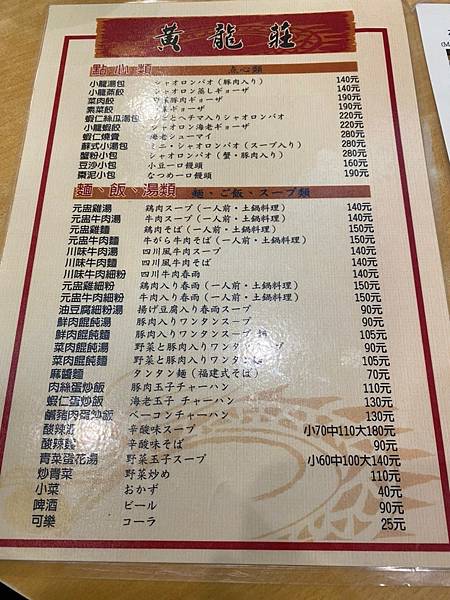 黃龍莊
點心類 点心類
小龍湯包 シャオロンパオ(豚肉入り) 140元
小龍蒸餃 シャオロン蒸しギョーザ 140元
菜肉餃 豚肉ギョーザ 190元
素菜餃 ギョーザ 190元
蝦仁絲瓜湯包 とヘチマ入りシャオロンパオ 220元
小龍蝦餃 シャオロン海老ギョーザ 220元
蝦仁燒賣 海老シューマイ 280元
蘇式小湯包 ミニ・シャオロンパオ(スープ入り) 280元
蟹粉小包 シャオロンパオ(蟹・豚肉入り) 280元
豆沙小包 小豆一口饅頭 160元
棗泥小包 なつめ一口饅頭 190元
麵、飯、湯類 麵・ご飯・スープ類
元盅雞湯 鶏肉スープ(一人前・土鍋料理) 140元
元盅牛肉湯 牛肉スープ(一人前・土鍋料理) 140元
元盅雞麵 鶏肉そば(一人前・土鍋料理) 150元
元盅牛肉麵 牛がら牛肉そば(一人前・土鍋料理) 150元
川味牛肉湯 四川風牛肉スープ 140元
川味牛肉麵 四川風牛肉そば 140元
川味牛肉細粉 四川牛肉春雨 140元
元盅雞細粉 鶏肉入り春雨(一人前・土鍋料理) 150元
元盅牛肉細粉 牛肉入り春雨(一人前・土鍋料理) 150元
油豆腐細粉湯 揚げ豆腐入り春雨スープ 90元
鮮肉餛飩湯 豚肉入りワンタンスープ 90元
鮮肉餛飩麵 豚肉入りワンタンスープ 麵 105元
菜肉餛飩湯 野菜と豚肉入りワンタンスープ 90元
菜肉餛飩麵 野菜と豚肉入りワンタン麵 105元
麻醬麵 タンタン麵(福建式そば) 70元
肉絲蛋炒飯 豚肉玉子チャーハン 110元
蝦仁蛋炒飯 海老玉子チャーハン 130元
鹹豬肉蛋炒飯 ベーコンチャーハン 130元
酸辣湯 辛酸味スープ 小70中110大180元
酸辣麵 辛酸味そば 90元
青菜蛋花湯 野菜玉子スープ 小60中100大140元
炒青菜 野菜炒め 110元
小菜 おかず 40元
啤酒 ビール 90元
可樂 コーラ 25元